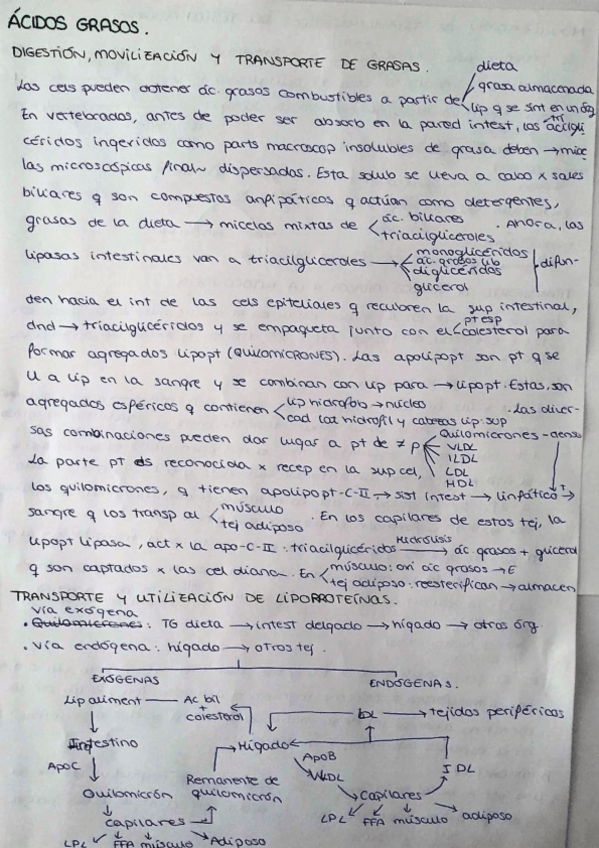 ÁCIDOS GRASOS.
DIGESTIÓN, MOVILIZACIÓN Y TRANSPORTE DE GRASAS.
dieta
Las cels pueden obtener ác. grasos combustibles a partir de grasa almacenada
lip q se sint en un óg
En vertebrados, antes de poder ser absorb en la pared intest, los triacilgli
céridos ingeridos como parts macroscop insolubles de grasa deben → mice
las microscópicas final~ dispersadas. Esta solub se lleva a cabo x sales
biliares q son compuestos anfipáticos q actúan como detergentes,
grasas de la dieta → micelas mixtas de ác. biliares
triacilgliceroles . Ahora, las
lipasas intestinales van a triacilgliceroles → monoglicéridos
ác. grasos lib
diglicéridos
glicerol
difun-
den hacia el int de las cels epiteliales q recubren la sup intestinal,
dnd → triacilglicéridos y se empaqueta junto con el pt esp
colesterol para
formar agregados lipopt (QUILOMICRONES). Las apolipopt son pt q se
U a lip en la sangre y se combinan con lip para → lipopt. Estas, son
agregados esféricos q contienen lip hidrofob → núcleo
cad lat hidrofil y cabezas lip: sup
. Las diver-
sas combinaciones pueden dar lugar a pt de ≠ ρ Quilomicrones - denso
VLDL
ILDL
LDL
HDL
La parte pt es reconocida x recep en la sup cel,
los quilomicrones, q tienen apolipopt-C-II → sist intest → linfático →
sangre q los transp al músculo
tej adiposo . En los capilares de estos tej, la
lipopt lipasa, act x la apo-C-II : triacilglicéridos Hidrólisis → ác. grasos + glicerol
q son captados x las cel diana. En músculo: oxi ác grasos → E
tej adiposo: reesterifican → almacen
TRANSPORTE Y UTILIZACIÓN DE LIPOPROTEÍNAS.
vía exógena
• Quilomicrones: TG dieta → intest delgado → hígado → otros órg.
• Vía endógena: hígado → otros tej.
EXÓGENAS
ENDÓGENAS.
Lip aliment — Ac bil
+
colesterol
LDL → tejidos periféricos
Intestino
Hígado
ApoC
ApoB
VLDL
IDL
Quilomicrón
Remanente de
quilomicrón
Capilares
LPL FFA músculo adiposo
Capilares
LPL FFA músculo Adiposo